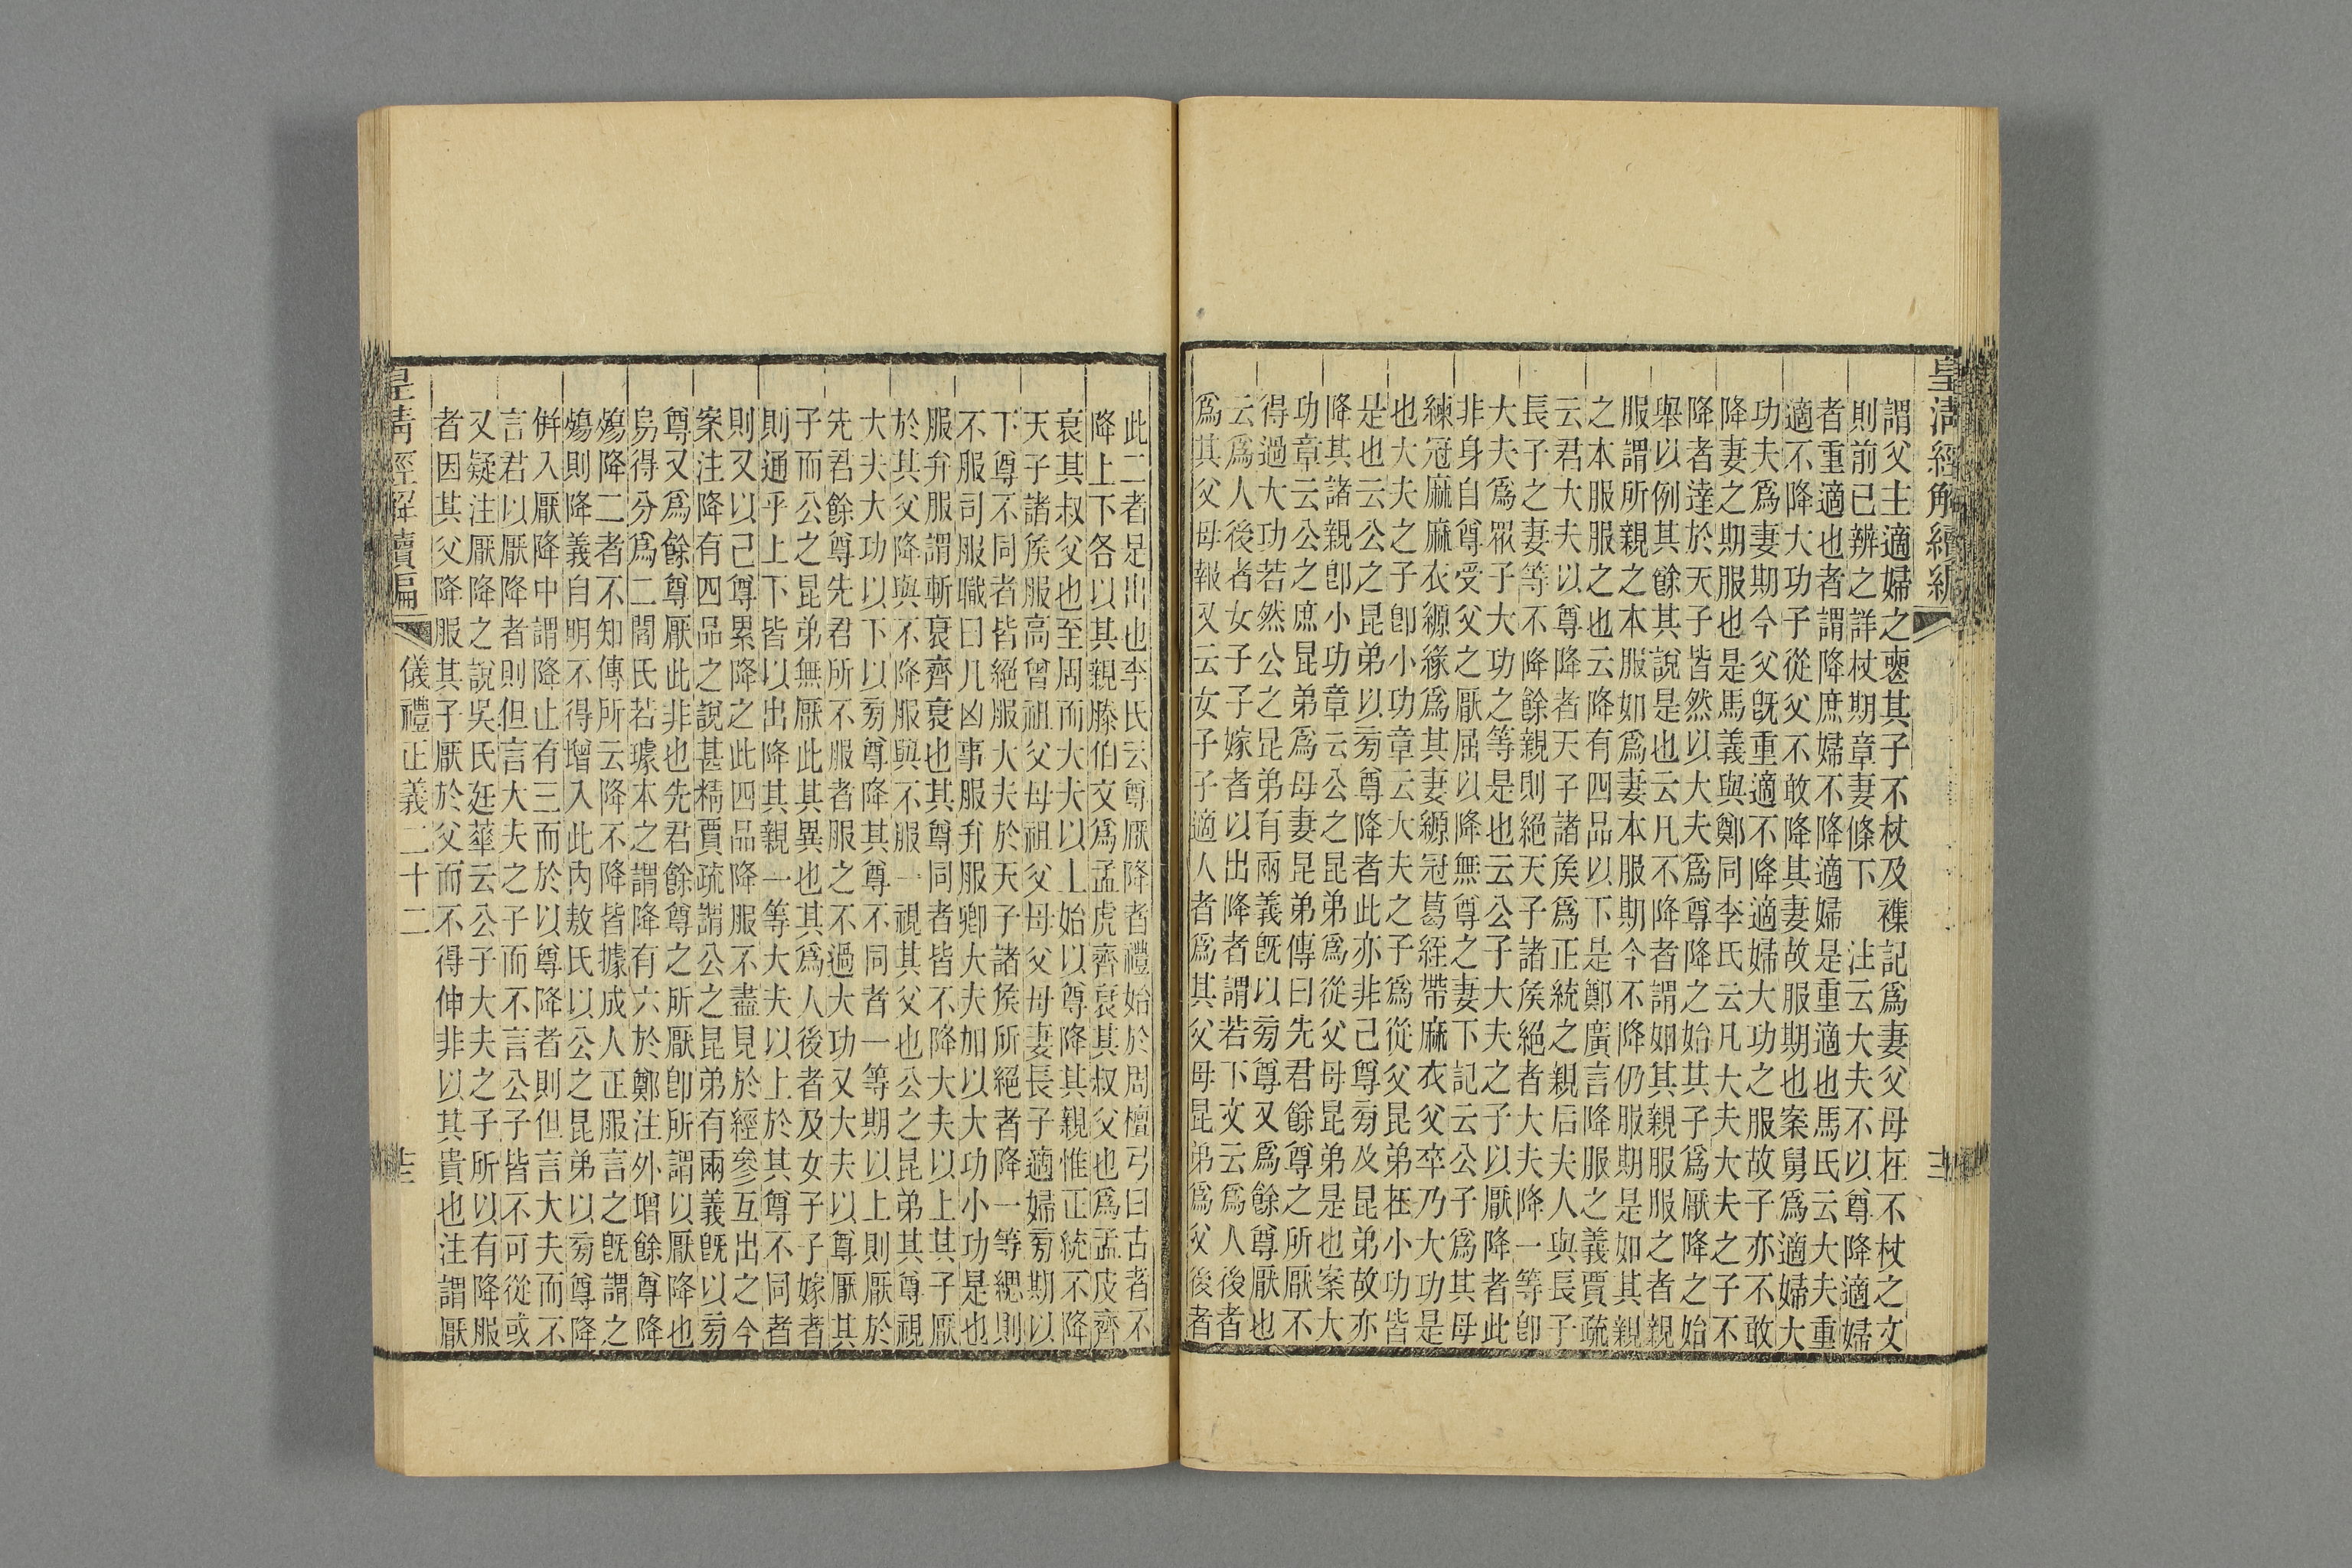 皇清經解續編
謂父主適婦之喪其子不杖及襍記爲妻父母在不杖之文
則前已辨之詳杖期章妻條下　注云大夫不以尊降適婦
者重適也者謂降庶婦不降適婦是重適也馬氏云大夫重
適不降大功子從父不敢降其妻故服期也案舅爲適婦大
功夫爲妻期今父旣重適不降適婦大功之服故子亦不敢
降妻之期服也是馬義與鄭同李氏云凡大夫大夫之子不
降者達於天子皆然以大夫爲尊降之始其子爲厭降之始
舉以例其餘其說是也云凡不降者謂姻其親服服之者親
服謂所親之本服如爲妻本服期今不降仍服期是如其親
之本服服之也云降有四品以下是鄭廣言降服之義賈疏
云君大夫以尊降者天子諸矦爲正統之親后夫人與長子
長子之妻等不降餘親則絕天子諸矦絕者大夫降一等卽
大夫爲眾子大功之等是也云公子大夫之子以厭降者此
非身自尊受父之厭屈以降無尊之妻下記云公子爲其母
練冠麻麻衣縓緣爲其妻縓冠葛絰帶麻衣父卒乃大功是
也大夫之子卽小功章云大夫之子爲從父昆弟在小功皆
是也云公之昆弟以㫄尊降者此亦非己尊㫄及昆弟故亦
降其諸親卽小功章云公之昆弟爲從父母昆弟是也案大
功章云公之庶昆弟爲母妻昆弟傳曰先君餘尊之所厭不
得過大功若然公之昆弟有兩義旣以㫄尊又爲餘尊厭也
云爲人後者女子子嫁者以出降者謂若下文云爲人後者
爲其父母報又云女子子適人者爲其父母昆弟爲父後者
此二者是出也李氏云尊厭降者禮始於周檀弓曰古者不
降上下各以其親滕伯文爲孟虎齊衰其叔父也爲孟皮齊
衰其叔父也至周而大夫以上始以尊降其親惟正統不降
天子諸矦服高曾祖父母祖父母父母妻長子適婦㫄期以
下尊不同者皆絕服大夫於天子諸矦所絕者降一等緦則
不服司服職曰凡凶事服弁服卿大夫加以大功小功是也
服弁服謂斬衰齊衰也其尊同者皆不降大夫以上其子厭
於其父降與不降服與不服一視其父也公之昆弟其尊視
大夫大功以下以㫄尊降其尊不同者一等期以上則厭於
先君餘尊先君所不服者服之不過大功又大夫以尊厭其
子而公之昆弟無厭此其異也其爲人後者及女子子嫁者
則通乎上下皆以出降其親一等大夫以上於其尊不同者
則又以己尊累降之此四品降服不盡見於經參互出之今
案注降有四品之說甚精賈疏謂公之昆弟有兩義旣以㫄
尊又爲餘尊厭此非也先君餘尊之所厭卽所謂以厭降也
烏得分爲二閻氏若璩本之謂降有六於鄭注外增餘尊降
殤降二者不知傳所云降不降皆據成人正服言之旣謂之
殤則降義自明不得增入此內敖氏以公之昆弟以㫄尊降
倂入厭降中謂降止有三而於以尊降者則但言大夫而不
言君以厭降者則但言大夫之子而不言公子皆不可從或
又疑注厭降之說吳氏廷華云公子大夫之子所以有降服
者因其父降服其子厭於父而不得伸非以其貴也注謂厭
皇清經解續編
儀禮正義二十二